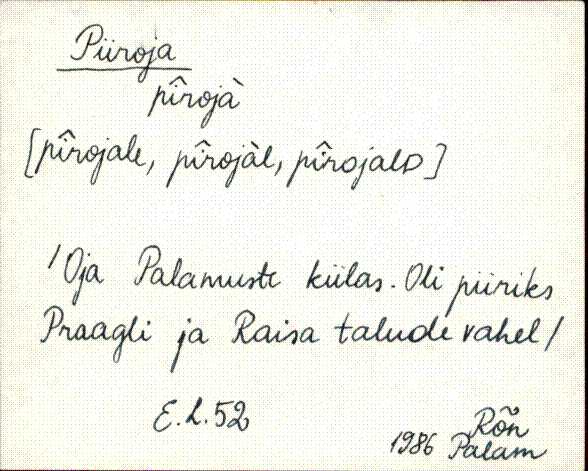 Piiroja
pîrojà
[pîrojale, pîrojàl, pîrojalD]
/Oja Palamuste külas. Oli piiriks
Praagli ja Raisa talude vahel/
E.L.52
Rõn
1986 Palam